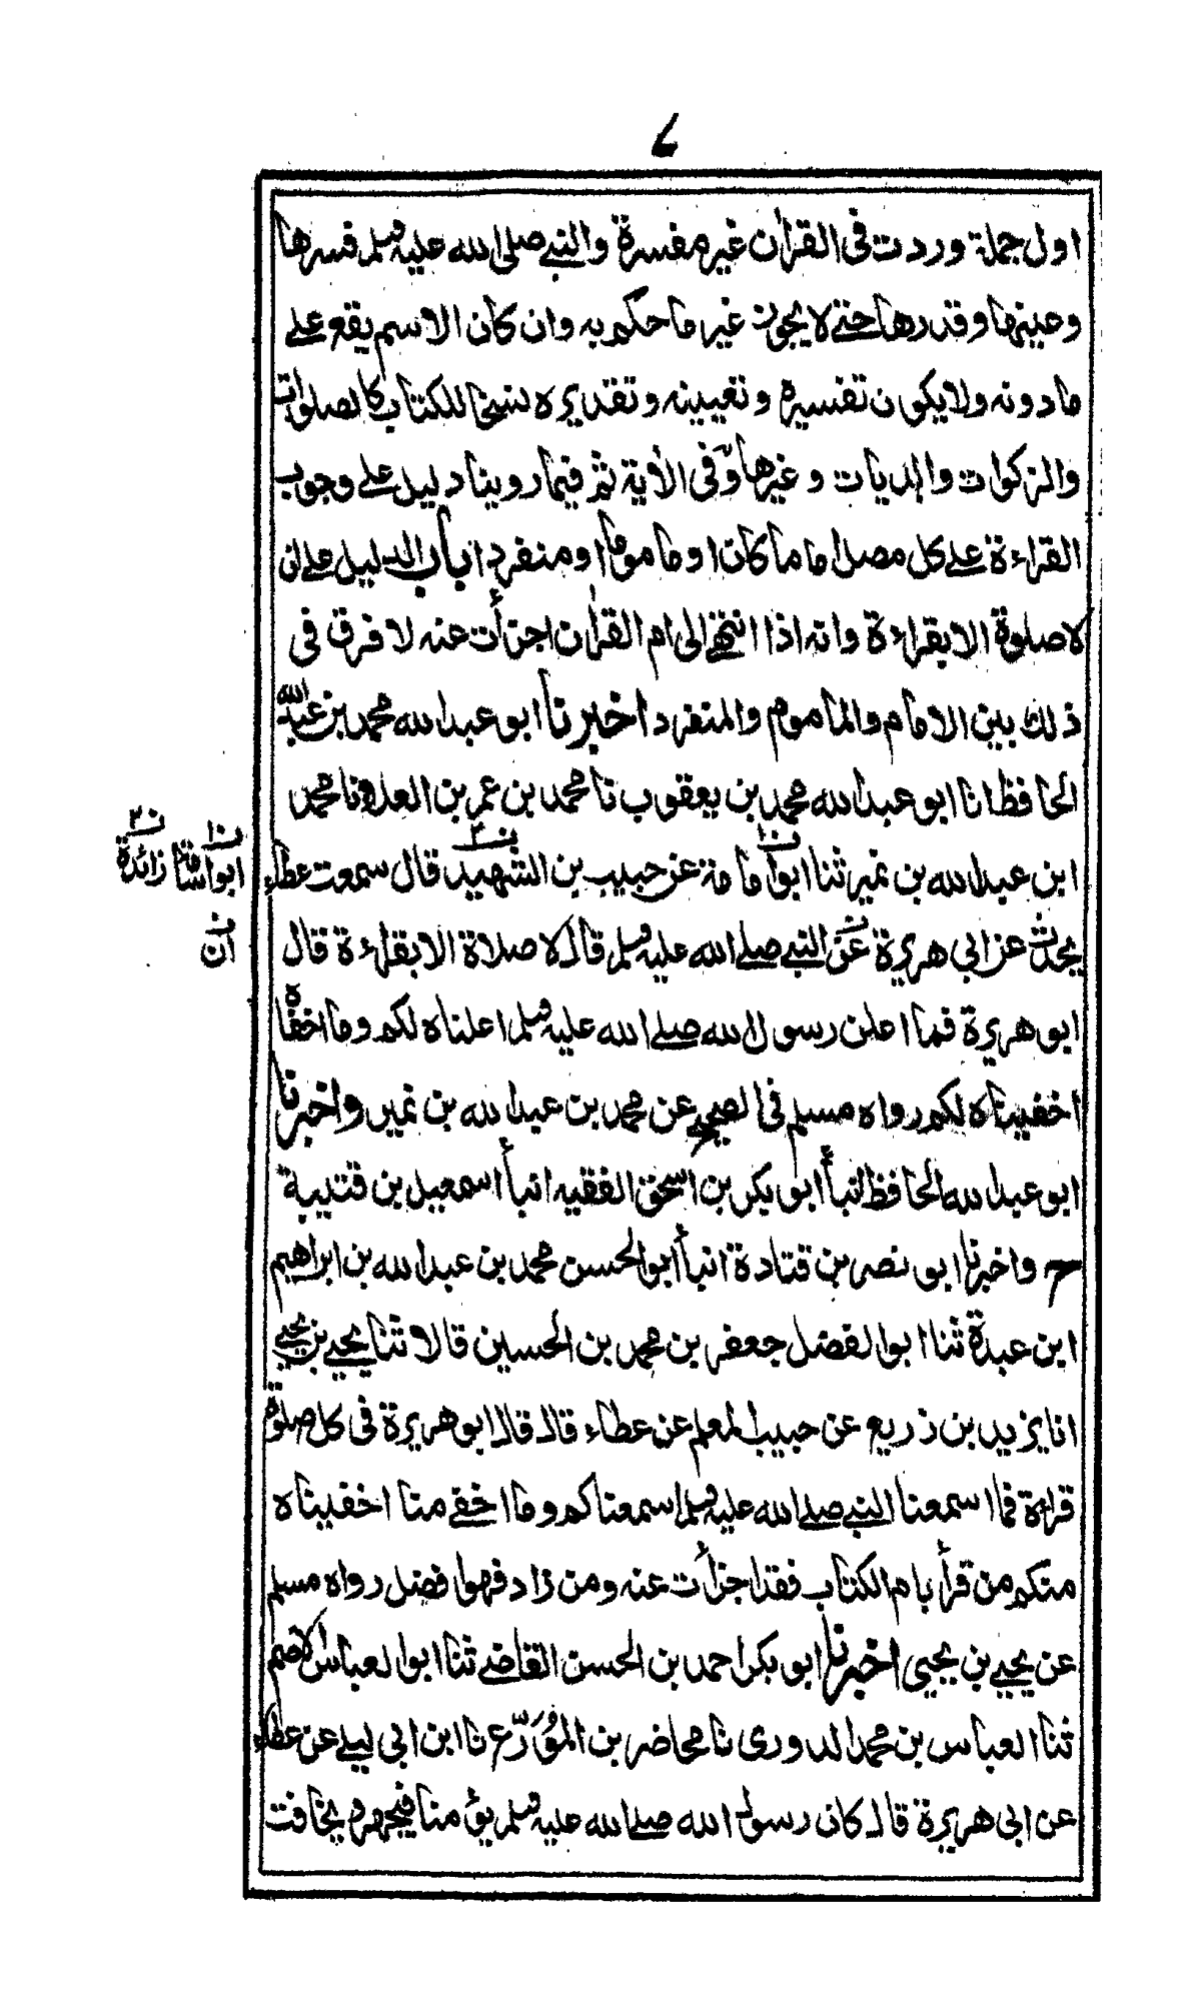 اول جملة وردت فى القرأن غير مفسرة والنبى صلى الله عليه وسلم فسرها
وعينها وقدرها حتى لا يجوز غير ما حكم به وان كان الاسم يقع على
ما دونه ولا يكون تفسيره وتعيينه وتقديره نسخا للكتاب كالصلوات
والزكوات والديات وغيرها وفى الأية ثم فيما روينا دليل على وجوب
القراءة على كل مصل اماما كان او ماموما او منفردا باب الدليل على ان
لا صلوة الا بقراءة وانه اذا انتهى الى ام القرأن اجزأت عنه لا فرق فى
ذلك بين الامام والماموم والمنفرد اخبرنا ابو عبد الله محمد بن عبد الله
الحافظ انا ابو عبد الله محمد بن يعقوب نا محمد بن عمر بن العلاء نا محمد
ابن عبد الله بن نمير ثنا ابو امامة عن حبيب بن الشهيد قال سمعت عطاء
يحدث عن ابى هريرة عن النبى صلى الله عليه وسلم قال لا صلاة الا بقراءة قال
ابو هريرة فما اعلن رسول الله صلى الله عليه وسلم اعلناه لكم وما اخفاه
اخفيناه لكم رواه مسلم فى الصحيح عن محمد بن عبد الله بن نمير واخبرنا
ابو عبد الله الحافظ انبأ ابو بكر بن اسحق الفقيه انبأ اسمعيل بن قتيبة
ح واخبرنا ابو نصر بن قتادة انبأ ابو الحسن محمد بن عبد الله بن ابراهيم
ابن عبدة ثنا ابو الفضل جعفر بن محمد بن الحسين قالا ثنا يحيى بن يحيى
انا يزيد بن زريع عن حبيب المعلم عن عطاء قال قال ابو هريرة فى كل صلوة
قراءة فما اسمعنا النبى صلى الله عليه وسلم اسمعناكم وما اخفى منا اخفيناه
منكم من قرأ بام الكتاب فقد اجزأت عنه ومن زاد فهو افضل رواه مسلم
عن يحيى بن يحيى اخبرنا ابو بكر احمد بن الحسن القاضى ثنا ابو العباس الاصم
ثنا العباس بن محمد الدورى نا محاضر بن المُوَرّع نا ابن ابى ليلى عن عطاء
عن ابى هريرة قال كان رسول الله صلى الله عليه وسلم يؤمنا فيجهر ويخافت
ن١ ن٢
زائدة
ن
ان